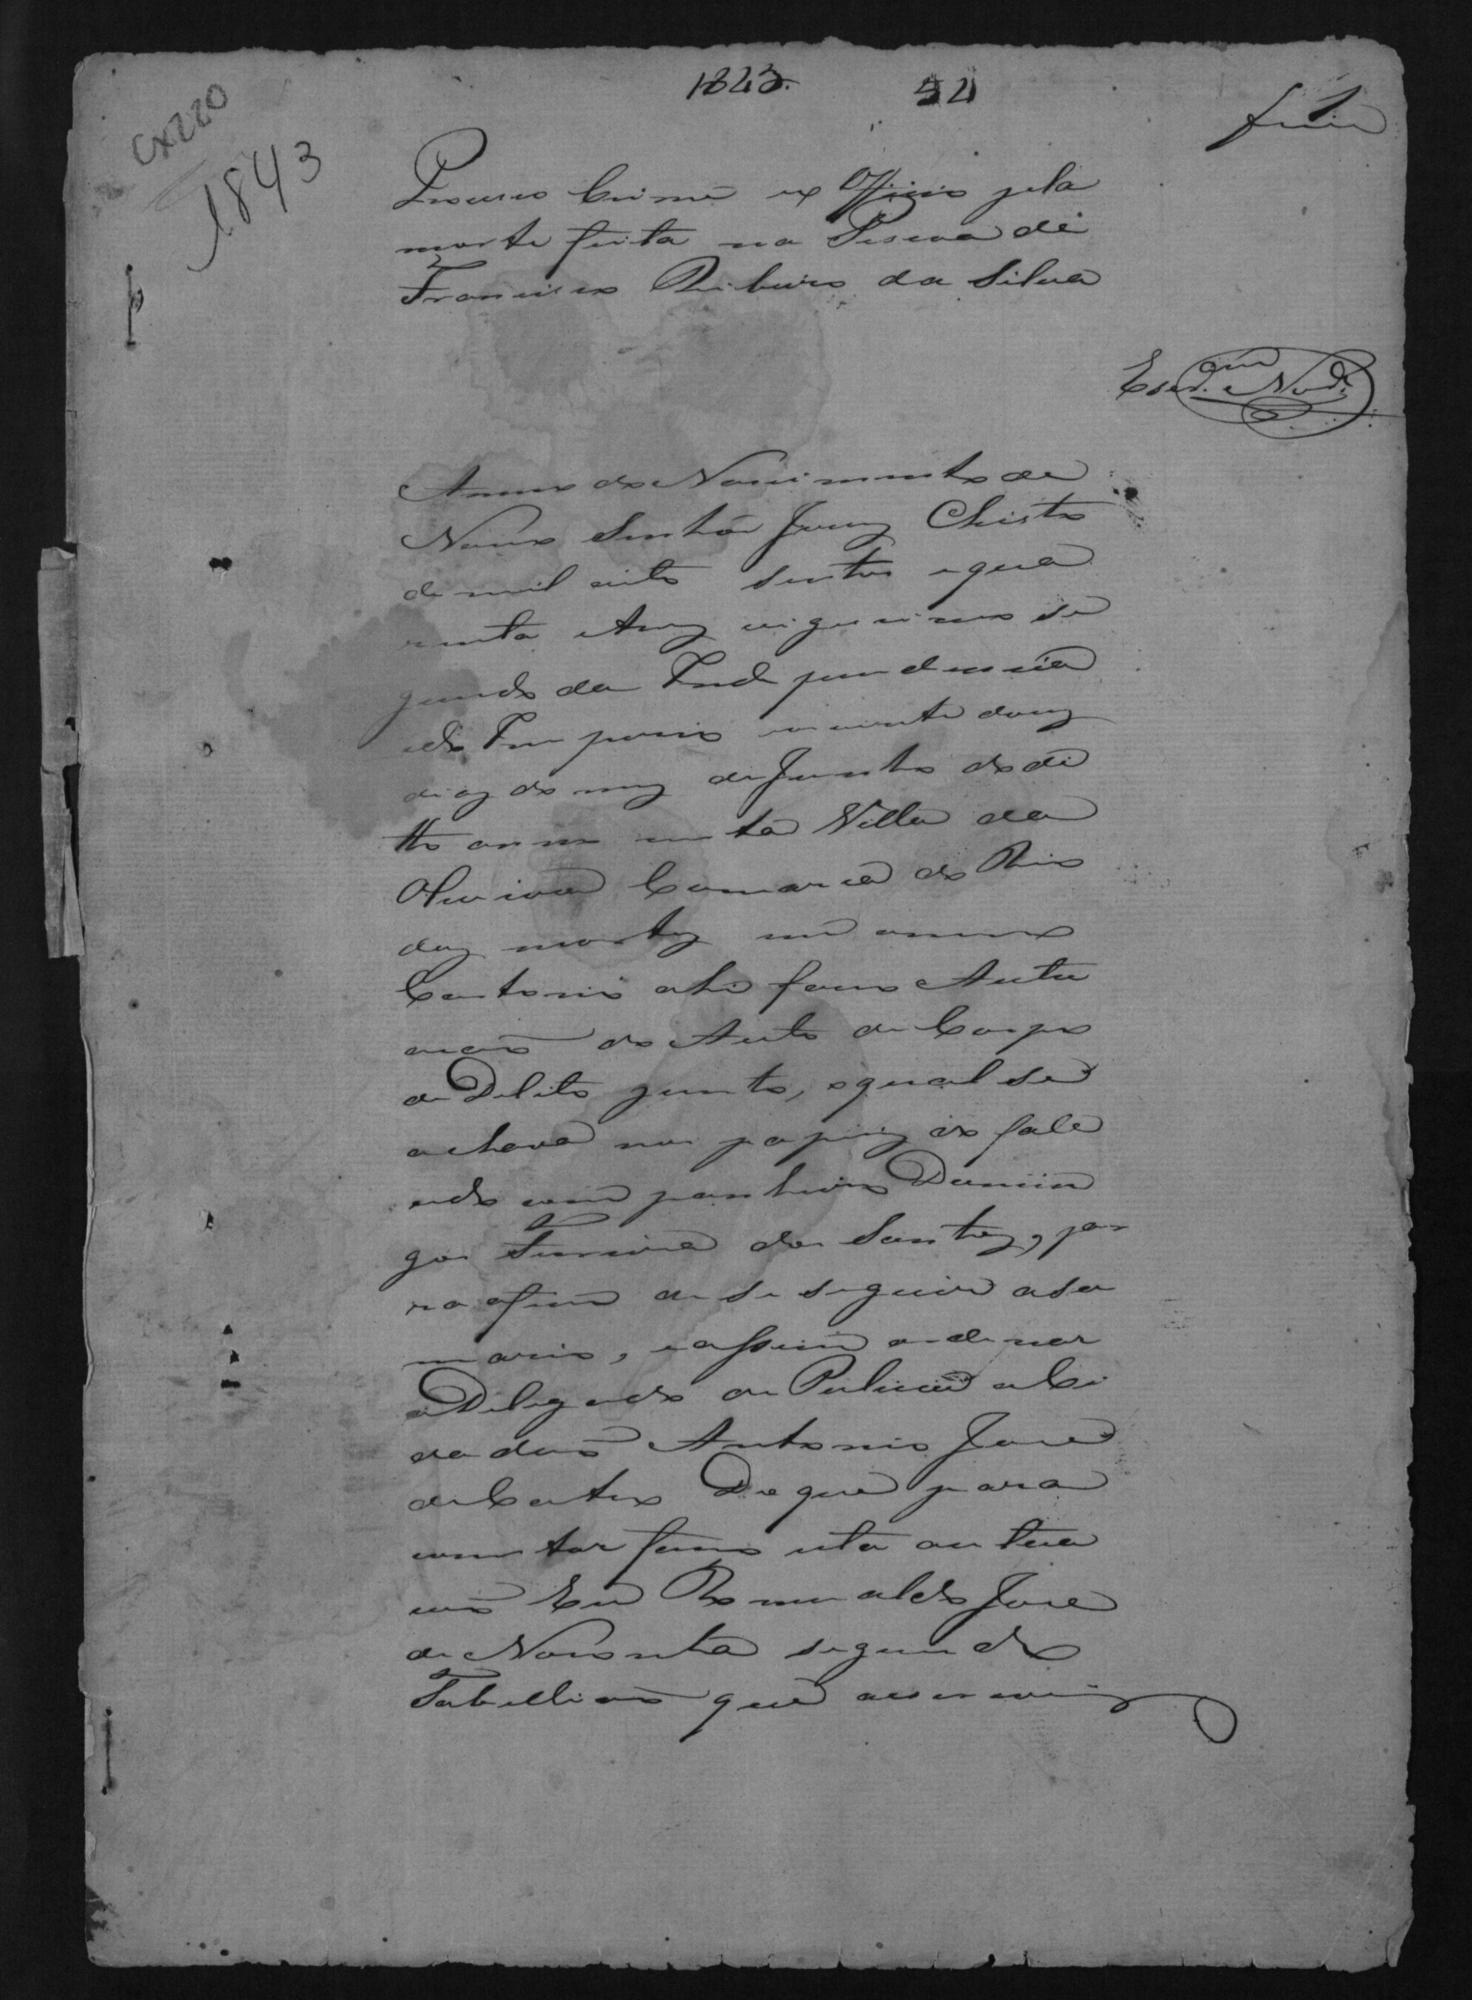 1843. 54
Cx220
1843
Processo Crime ex Officio pela
morte feita na Pessoa de
Francisco Ribeiro da Silva
Annno do Nascimento de
Nosso Senhor Jesuz Christo
de mil oito sentos e qua
renta e trez vigessimo se
gundo da Independencia
e do Imperio em vinte douz
diaz do mez de Junho do di
tto anno nesta Villa da
Oliveira Comarca do Rio
daz mortez em o meu
Cartorio ahi faço Autu
acaõ do Auto de Corpo
de Delito junto, o qual se
achava nos papeiz do fale
cido com panheiro Domin
gos Ferreira dos Santoz, pa
ra afim de se seguir a su
mario, e assim ordenar
o Delegado de Policia o Ci
dadaõ Antonio José
de Castro De que para
constar faço esta autua
caõ Eu Romualdo José
de Noronha segundo
Tabelliaõ que o escrevi